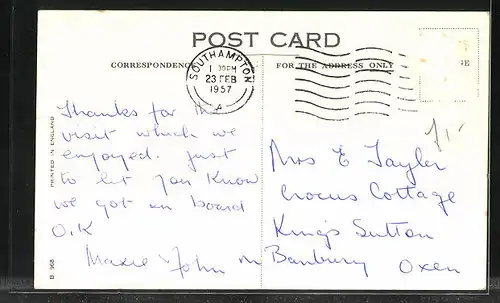 POST CARD
CORRESPONDENCE
FOR THE ADDRESS ONLY
GE
SOUTHAMPTON
1 30PM
23 FEB
1957
A
Thanks for the
visit which we
enjoyed. Just
to let you know
we got on board
O.K
John
Mrs E Tayler
Crocus Cottage
Kings Sutton
Nr Banbury
Oxen
PRINTED IN ENGLAND
B. 968